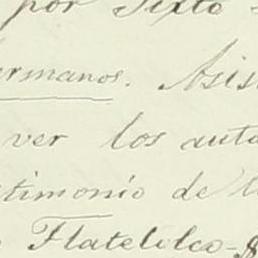 por Sixto
ermanos. Asis
ver los auto
timonio de
Tlatelolco-$